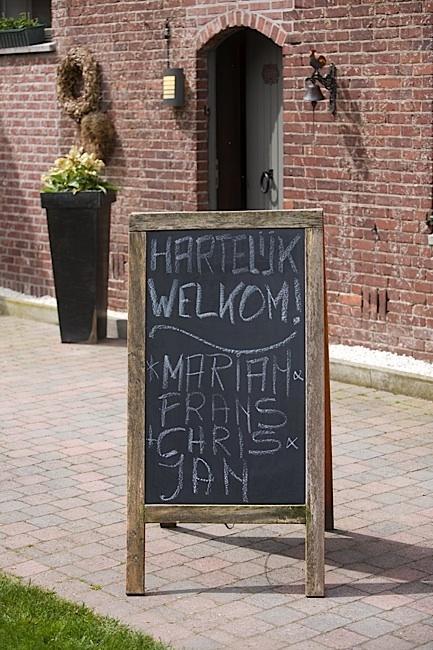 HARTELIJK
WELKOM!
*MARIAM &
FRANS
+CHRIS x
JAN